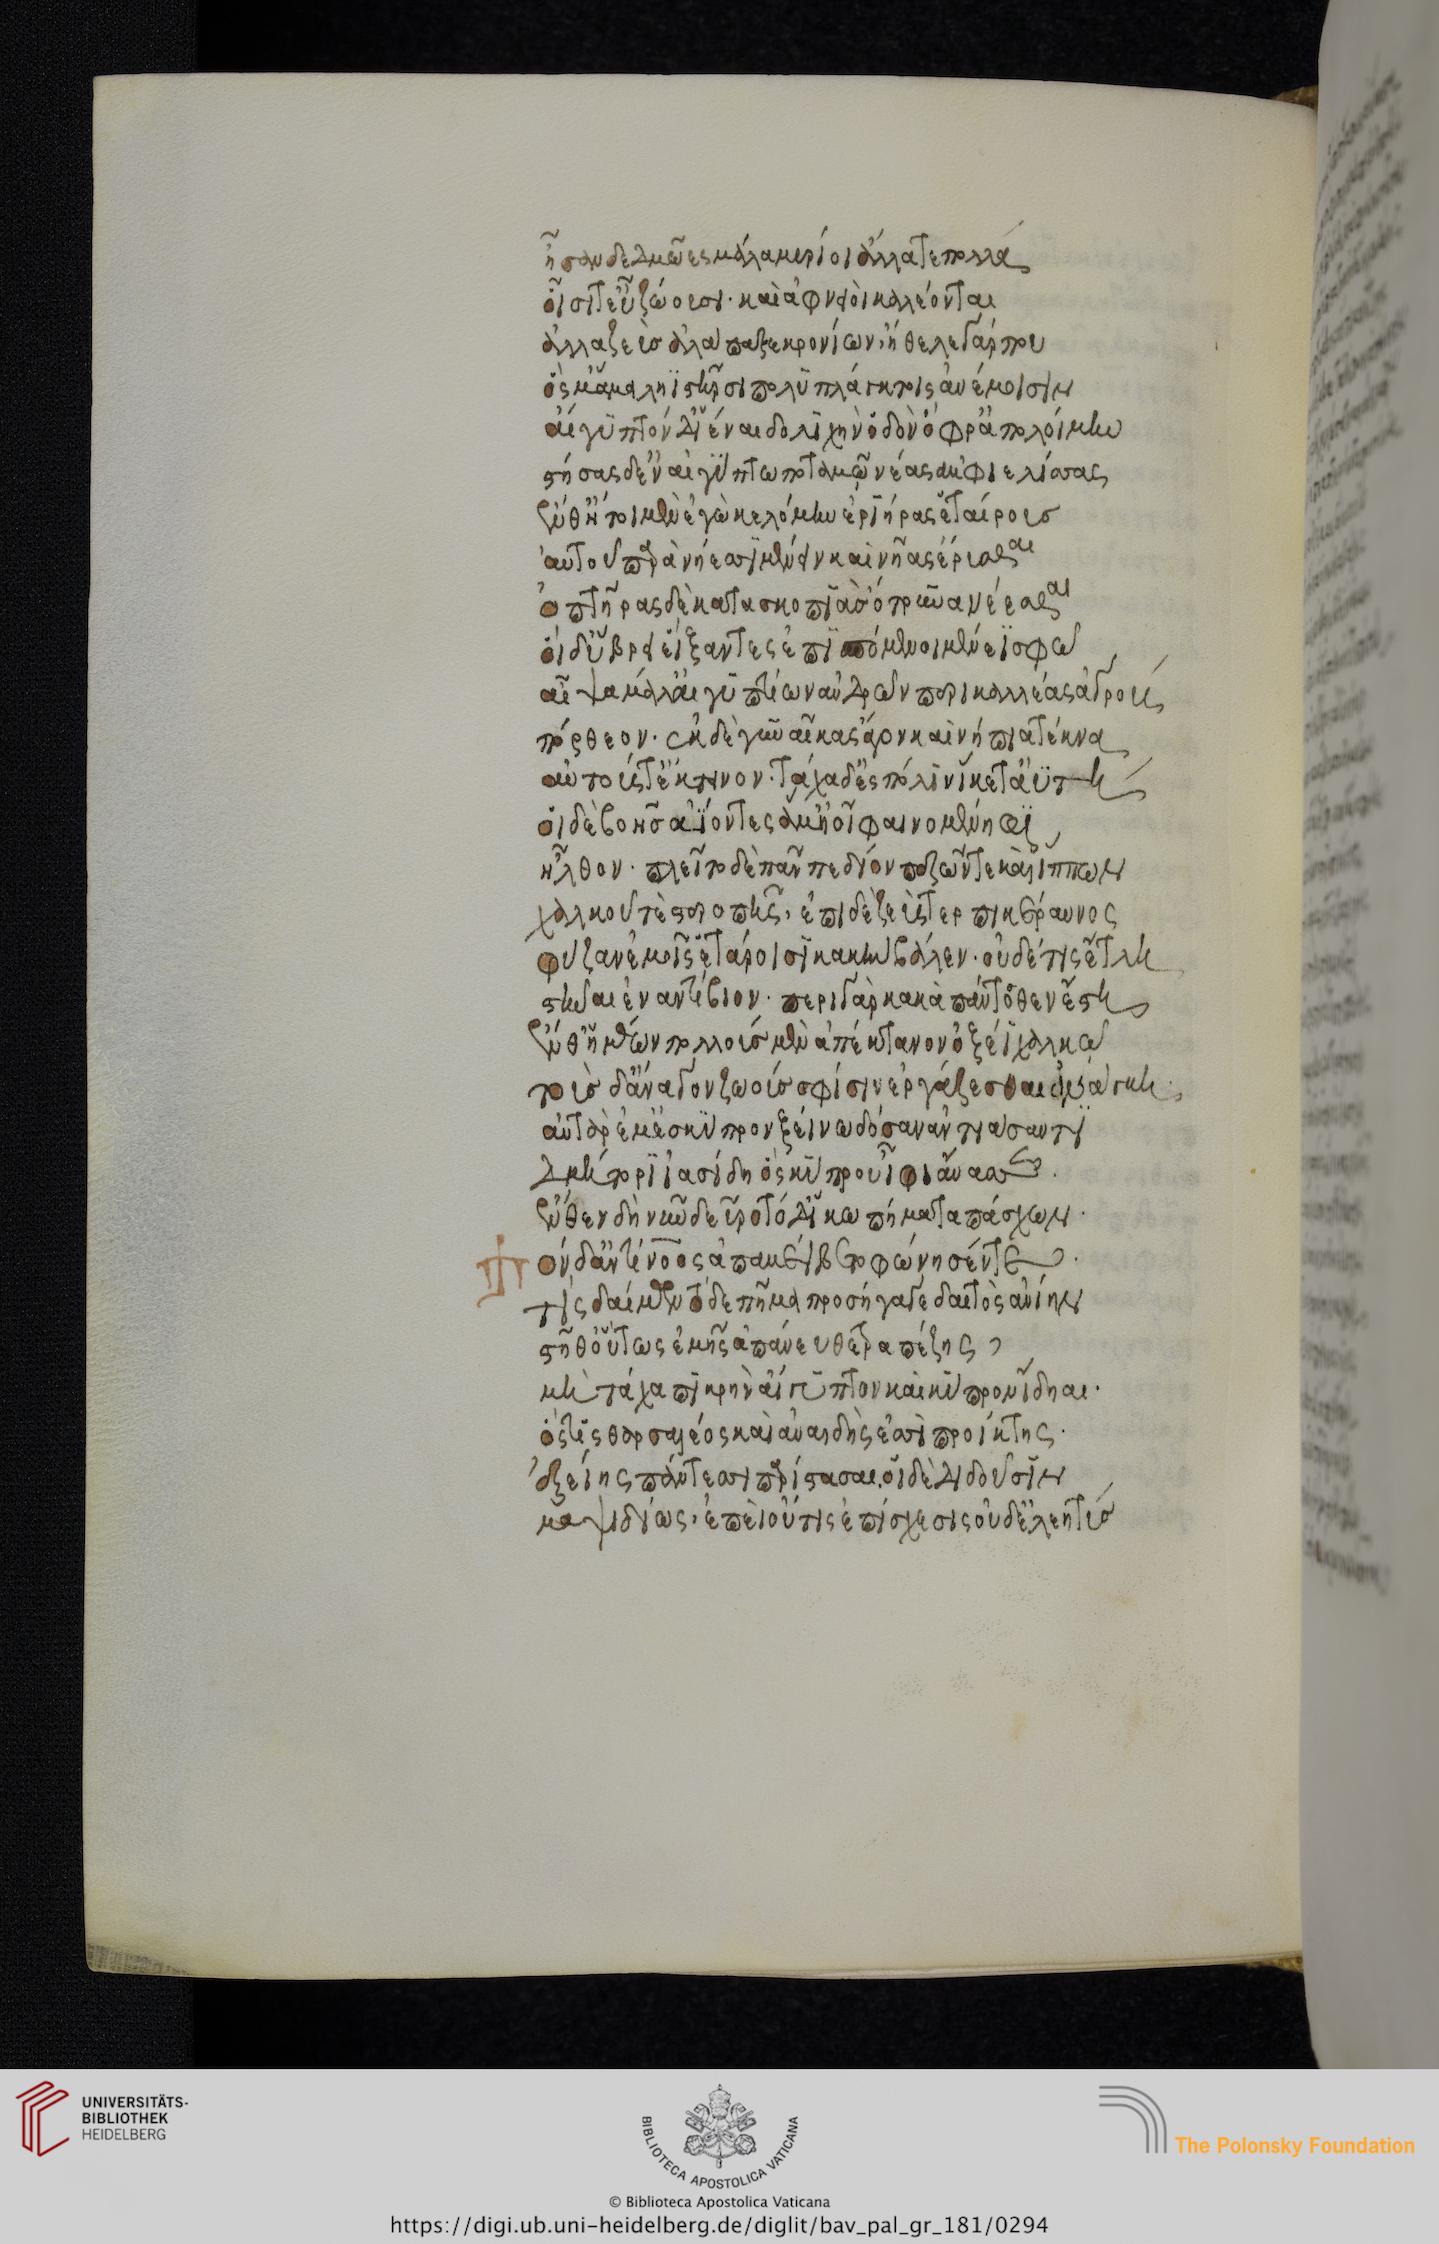 ἦσαν δὲ δμῶες μάλα μυρίοι ἄλλά τε πολλὰ
οἷσίτ' εὖ ζώουσι· καὶ ἀφνειοὶ καλέονται
ἀλλὰ ζεὺς ἀλάπαξε κρονίων, ἤθελε γάρ που
ὅς μ' ἅμα ληϊστῆρσι πολυπλάγκτοις ἀνέμοισιν
αἴγυπτόνδ' ἰέναι δολιχὴν ὁδὸν ὄφρ' ἀπολοίμην
στῆσας δ' ἐν αἰγύπτω ποταμῶ νέας ἀμφιελίσσας
ἔνθ' ἤτοι μὲν ἐγὼ κελόμην ἐρίηρας ἑταίρους
αὐτοῦ παρὰ νήεσσι μένειν καὶ νῆας ἔρυσθαι
ὀπτῆρας δὲ κατὰ σκοπιὰς ὄτρυνα νέεσθαι
οἱ δ' ὕβρει εἴξαντες ἐπισπόμενοι μένεϊ σφῶ
αἶψα μάλ' αἰγυπτίων ἀνδρῶν περικαλλέας ἀγροὺς
πόρθεον· ἐκ δὲ γυναῖκας ἄγον καὶ νήπια τέκνα
αὐτούς τ' ἔκτεινον· τάχα δ' ἐς πόλιν ἵκετ' ἀϋτή
οἱ δὲ βοῆς ἀΐοντες ἅμ' ἠοῖ φαινομένηφι
ἦλθον· πλεῖτο δὲ πᾶν πεδίον πεζῶν τε καὶ ἵππων
χαλκοῦ τε στεροπῆς, ἐπὶ δὲ ζεὺς τερπικέραυνος
φύζαν ἐμοῖς ἑτάροισι κακὴν βάλεν· οὐδέ τις ἔτλη
στῆναι ἐναντίβιον· περὶ γὰρ κακὰ πάντοθεν ἔστη
ἔνθ' ἡμέων πολλοὺς μὲν ἀπέκτανον ὀξέϊ χαλκῶ
τοὺς δ' ἄναγον ζωούς σφίσιν ἐργάζεσθαι ἀνάγκη·
αὐτὰρ ἔμ' ἐς κύπρον ξείνω δόσαν ἀντιάσαντι
δμήτορι ἰασίδη ὃς κύπρου ἶφι ἄνασσεν·
ἔνθεν δὴ νῦν δεῦρο τόδ' ἵκω πήματα πάσχων·
Τὸν δ' ἀντίνοος ἀπαμείβετο φώνησέν τε·
τίς δαίμων τόδε πῆμα προσήγαγε δαιτὸς ἀνίην
στῆθ' οὕτως ἐμῆς ἀπάνευθε τραπέζης,
μὴ τάχα πικρὴν αἴγυπτον καὶ κύπρον ἴδηαι·
ὅς τις θαρσαλέος καὶ ἀναιδὴς ἐσσὶ προίκτης·
ἑξείης πάντεσσι παρίστασαι, οἱ δὲ διδοῦσιν
μαψιδίως, ἐπεὶ οὔτις ἐπίσχεσις οὐδ' ἐλεητὺς
UNIVERSITÄTS-
BIBLIOTHEK
HEIDELBERG
BIBLIOTECA APOSTOLICA VATICANA
The Polonsky Foundation
© Biblioteca Apostolica Vaticana
https://digi.ub.uni-heidelberg.de/diglit/bav_pal_gr_181/0294